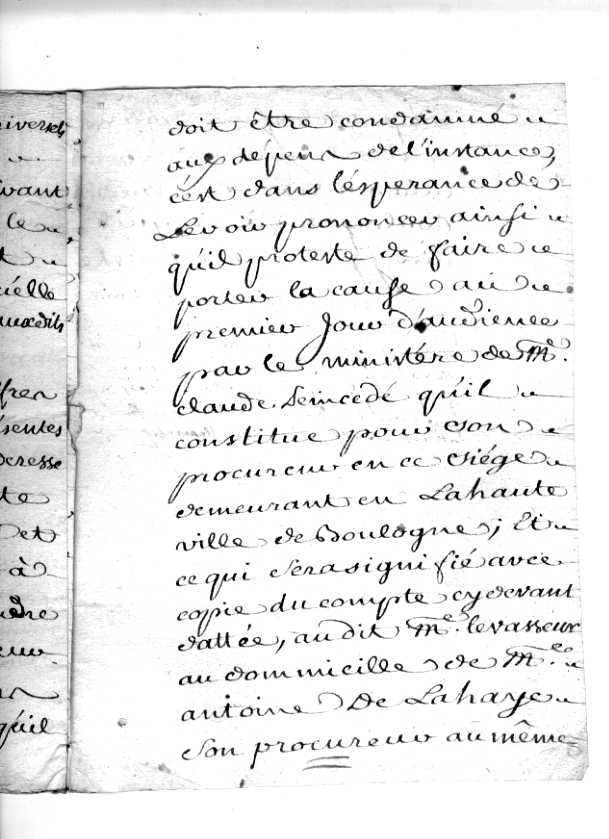 iversels
doit être condamné
aux dépens de l'instance,
c'est dans lésperance de
vant
Le voir prononcer ainsi
le
qu'il proteste de faire
t
porter la cause au
cielle
premier Jour d'audience
auxdits
par le ministére de Me.
claude qu'il
fren
constitue pour son
ésentes
procureur en ce siége
deresse
demeurant en Lahaute
te
ville de Boulogne; Et
et
ce qui sera signifié avec
à
copie du compte cy devant
dattée, audit Me. levasseur
au dommicille de Me.
antoine De Lahaye
qu'il
son procureur au même